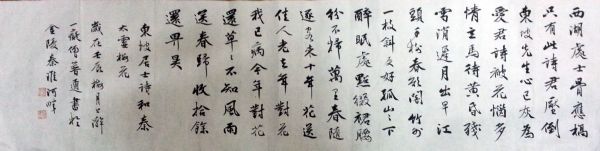 西湖處士骨應槁
只有此詩君壓倒
東坡先生心已灰為
愛君詩被花惱多
情立馬待黃昏殘
雪消遲月出早江
頭千樹春欲闇竹外
一枝斜更好孤山々下
醉眠處點綴裙腰
紛不掃萬里春隨
逐客來十年花送
佳人老去年對花
我已病今年對花
還草々不知風雨
送春歸收拾餘
還畀昊
東坡居士詩和秦
太虛梅花
歲在壬辰梅月于
一僧普通書於
金陵秦淮河畔